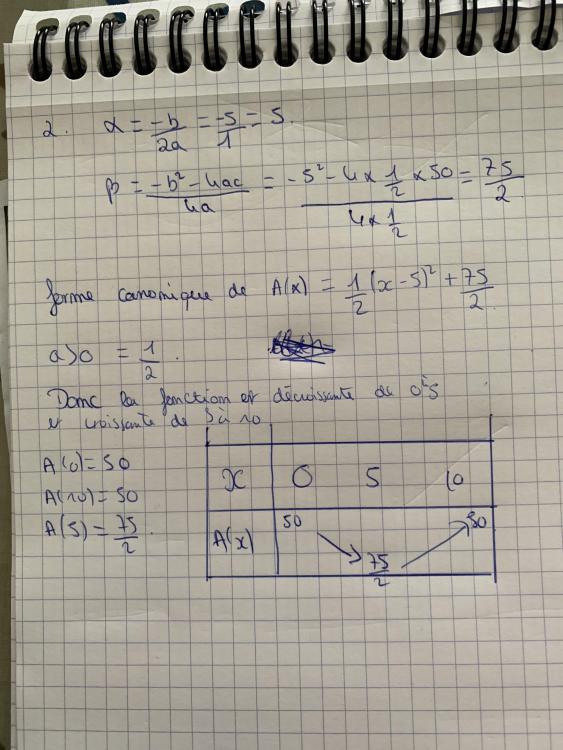 2. α = -b/2a = -5/1 = 5.
β = -b² - 4ac/4a = -5² - 4 x 1/2 x 50/4 x 1/2 = 75/2
forme canonique de A(x) = 1/2 (x - 5)² + 75/2.
a>0 = 1/2.
Donc la fonction et décroissante de 0 à 5
et croissante de 5 à 10
A(0) = 50
A(10) = 50
A(5) = 75/2.
x 0 5 10
A(x) 50 75/2 50